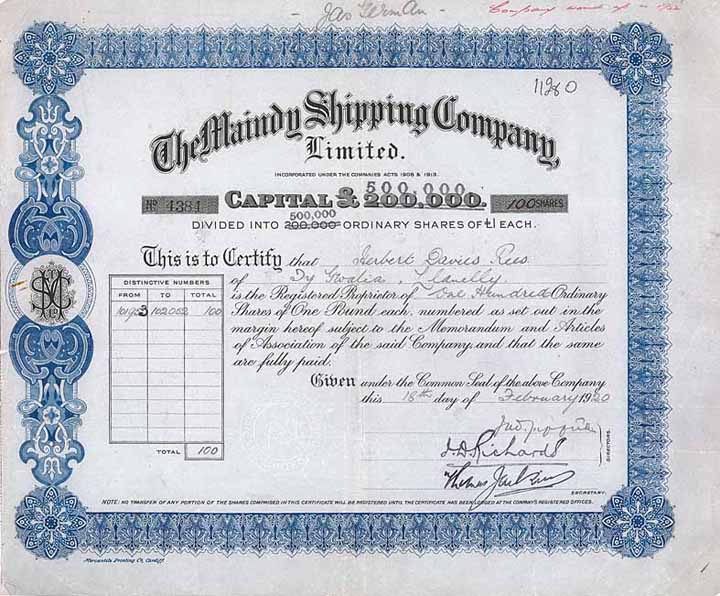 - Jas German -
Company wound up
11280
The Maindy Shipping Company,
Limited.
INCORPORATED UNDER THE COMPANIES ACTS 1908 & 1913.
No 4384 CAPITAL £ 200,000. 500,000 100 SHARES
500,000
DIVIDED INTO 200,000 ORDINARY SHARES OF £1 EACH.
This is to Certify that Herbert Davies Rees
of Ty Gwalia, Llanelly
is the Registered Proprietor of One Hundred Ordinary
Shares of One Pound each, numbered as set out in the
margin hereof subject to the Memorandum and Articles
of Association of the said Company, and that the same
are fully paid.
DISTINCTIVE NUMBERS
FROM TO TOTAL
101953 102052 100
TOTAL 100
Given under the Common Seal of the above Company
this 18th day of February 1920
J. D. Richards
DIRECTORS.
Thomas
SECRETARY.
NOTE: NO TRANSFER OF ANY PORTION OF THE SHARES COMPRISED IN THIS CERTIFICATE WILL BE REGISTERED UNTIL THE CERTIFICATE HAS BEEN LODGED AT THE COMPANY'S REGISTERED OFFICES.
Mercantile Printing Co, Cardiff